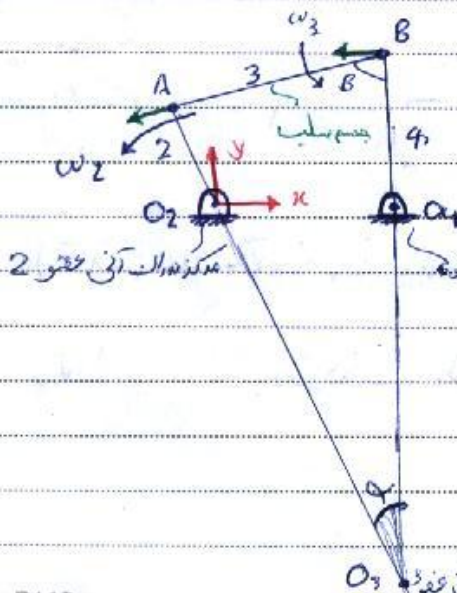 ω₃
B
A
3
B
جسم صلب
4
ω₂
2
y
x
O₂
O₄
مرکز دوران آنی عضو 2
α
O₃